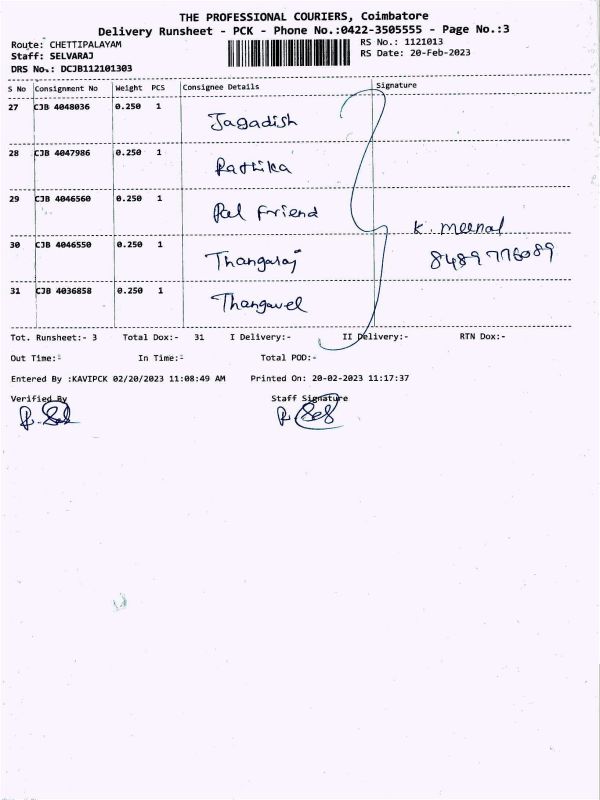 THE PROFESSIONAL COURIERS, Coimbatore
Delivery Runsheet - PCK - Phone No.:0422-3505555 - Page No.:3
Route: CHETTIPALAYAM RS No.: 1121013
Staff: SELVARAJ RS Date: 20-Feb-2023
DRS No.: DCJB112101303
S No Consignment No Weight PCS Consignee Details Signature
27 CJB 4048036 0.250 1 Jagadish
28 CJB 4047986 0.250 1 Rathika
29 CJB 4046560 0.250 1 Pal Friend
K. Meenal
30 CJB 4046550 0.250 1 Thangaraj 8489776089
31 CJB 4036858 0.250 1 Thangavel
Tot. Runsheet:- 3 Total Dox:- 31 I Delivery:- II Delivery:- RTN Dox:-
Out Time:- In Time:- Total POD:-
Entered By :KAVIPCK 02/20/2023 11:08:49 AM Printed On: 20-02-2023 11:17:37
Verified By Staff Signature